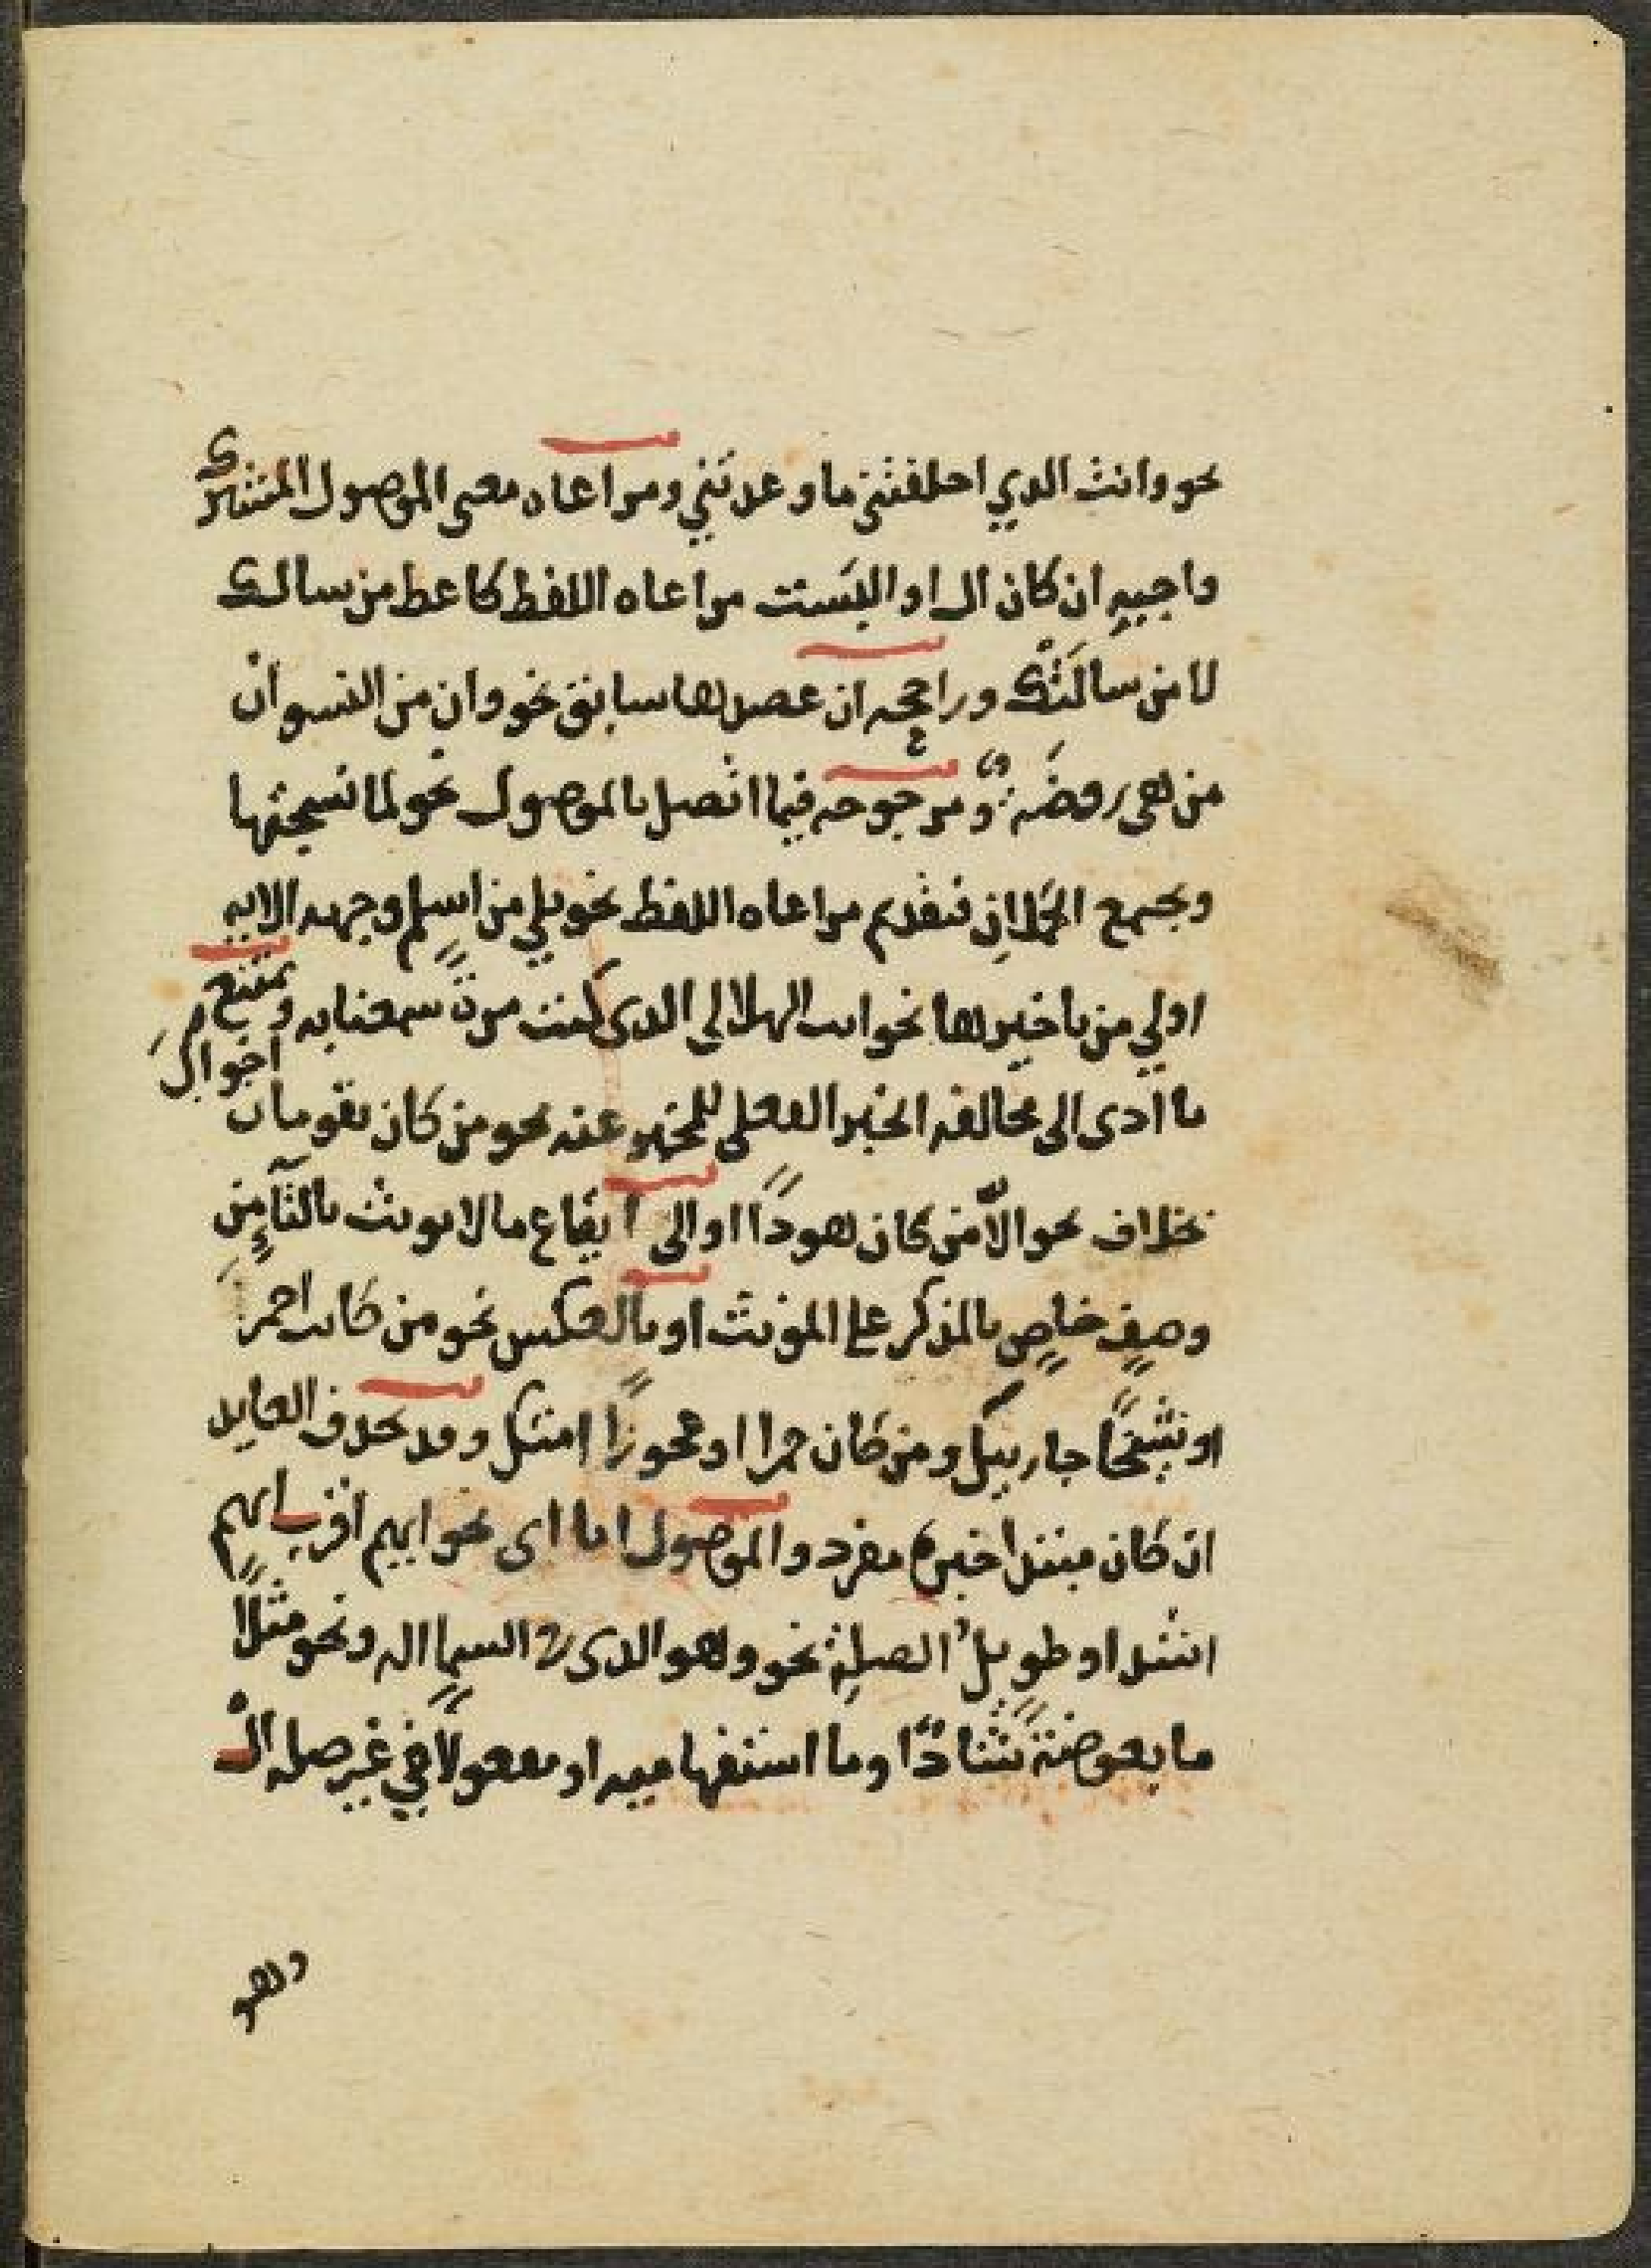 نحو وانت الدي اخلفتني ما وعدتني ومراعاه معنى الموصول المشترك
واجبه ان كان ال او البست مراعاه اللفظ كاعط من سالك
لا من سالتك وراجحه ان عضدها سابق نحو وان من النسوان
من هي روضة ومرجوحه فيما اتصل بالموصول نحو لما نسجتها
ويجتمع الحملان فتقدم مراعاه اللفظ نحو بلي من اسلم وجهه الايه
اولي من تاخيرها نحو انت الهلالي الدى كنت مرة سمعنا به ويمتنع من احوال
ما ادى الى مخالفه الخبر الفعلى للمخبر عنه نحو من كان يقومان
بخلاف نحو الا من كان هودا او الى ايقاع ما لا يونث بالتا من
وصف خاص بالمذكر على المونث او بالعكس نحو من كانت احمر
او شيخا جاريتك ومن كان حمرا او عجوزا امتك وقد يحذف العايد
ان كان مبتدا خبره مفرد والموصول اما اى نحو ايهم اقرب ايهم
اشد او طويل الصلة نحو وهو الدى في السما اله ونحو مثلا
ما بعوضة شاذا وما استفهاميه او مفعولا في غير صله ال
وهو